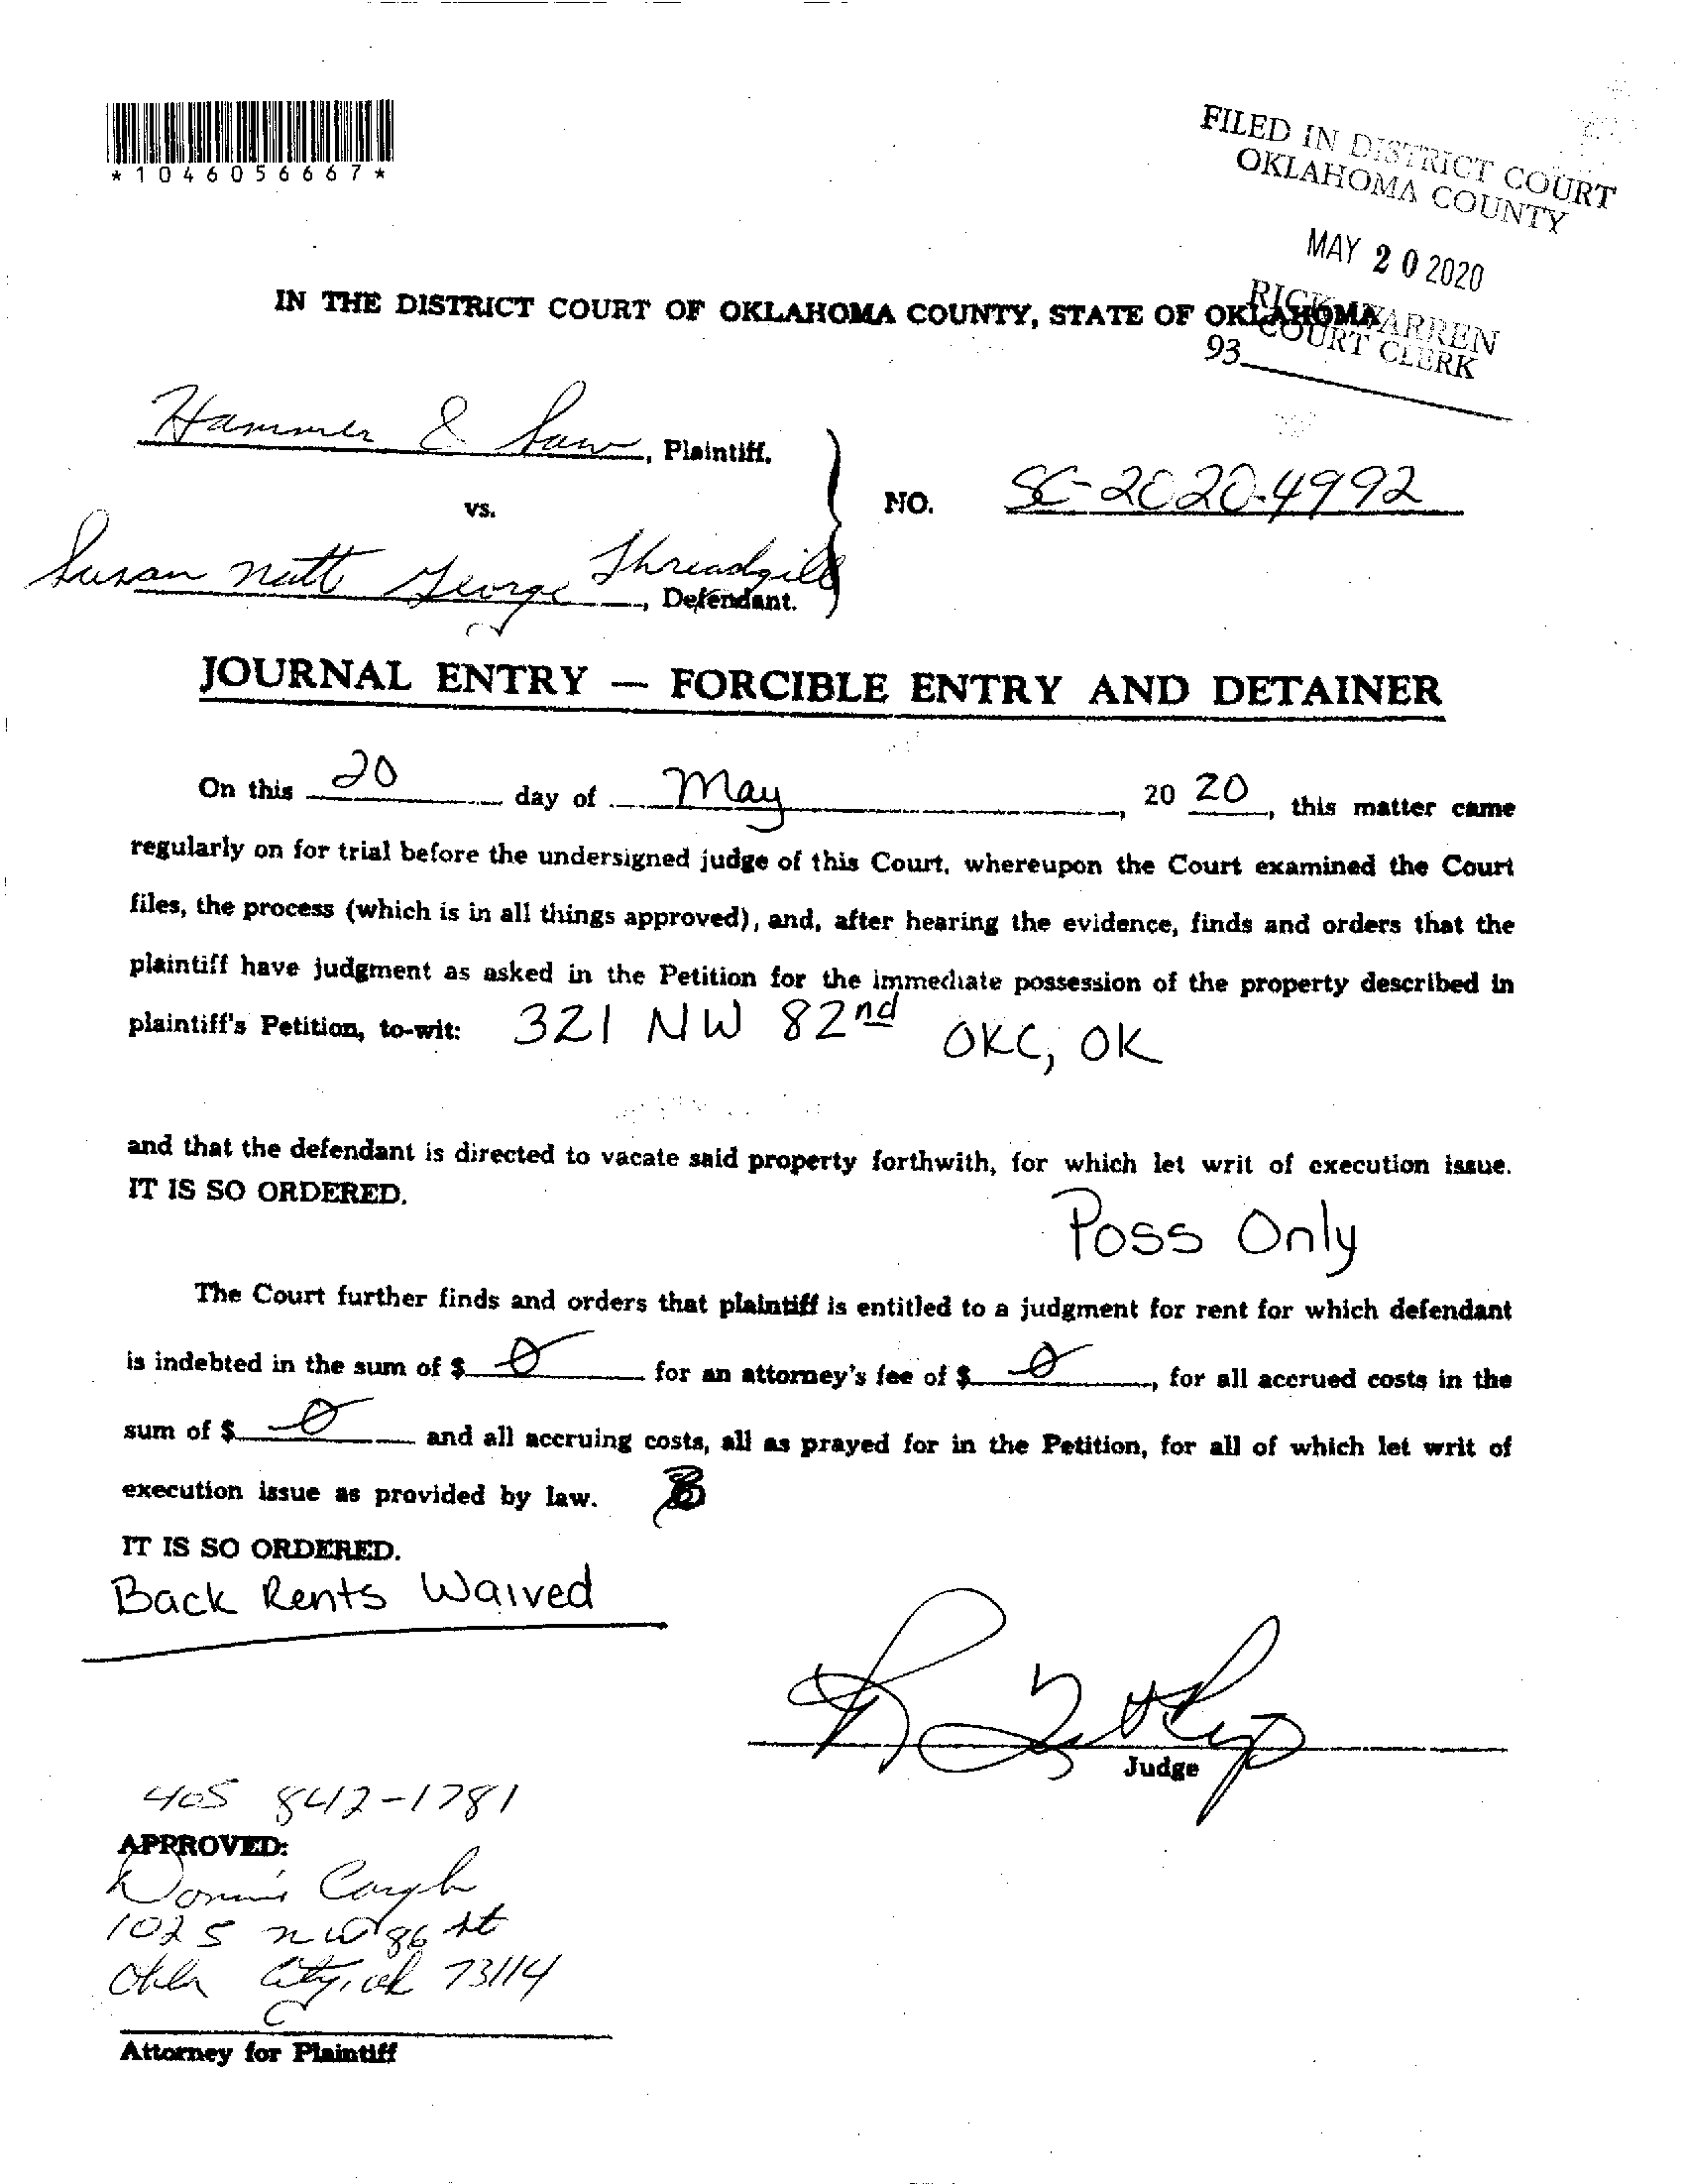 *1046056667*
FILED IN DISTRICT COURT
OKLAHOMA COUNTY
MAY 20 2020
RICK WARREN
COURT CLERK
93
IN THE DISTRICT COURT OF OKLAHOMA COUNTY, STATE OF OKLAHOMA
Hammer & Saw, Plaintiff,
vs.
NO. SC-2020-4992
Susan Nutt George Threadgill, Defendant.
JOURNAL ENTRY — FORCIBLE ENTRY AND DETAINER
On this 20 day of May, 20 20, this matter came
regularly on for trial before the undersigned judge of this Court, whereupon the Court examined the Court
files, the process (which is in all things approved), and, after hearing the evidence, finds and orders that the
plaintiff have judgment as asked in the Petition for the immediate possession of the property described in
plaintiff's Petition, to-wit: 321 NW 82nd OKC, OK
and that the defendant is directed to vacate said property forthwith, for which let writ of execution issue.
IT IS SO ORDERED.
Poss Only
The Court further finds and orders that plaintiff is entitled to a judgment for rent for which defendant
is indebted in the sum of $ 0 for an attorney's fee of $ 0, for all accrued costs in the
sum of $ 0 and all accruing costs, all as prayed for in the Petition, for all of which let writ of
execution issue as provided by law.
IT IS SO ORDERED.
Back Rents Waived
Judge
405 842-1781
APPROVED:
1025 NW 86 St
Okla City, ok 73114
Attorney for Plaintiff